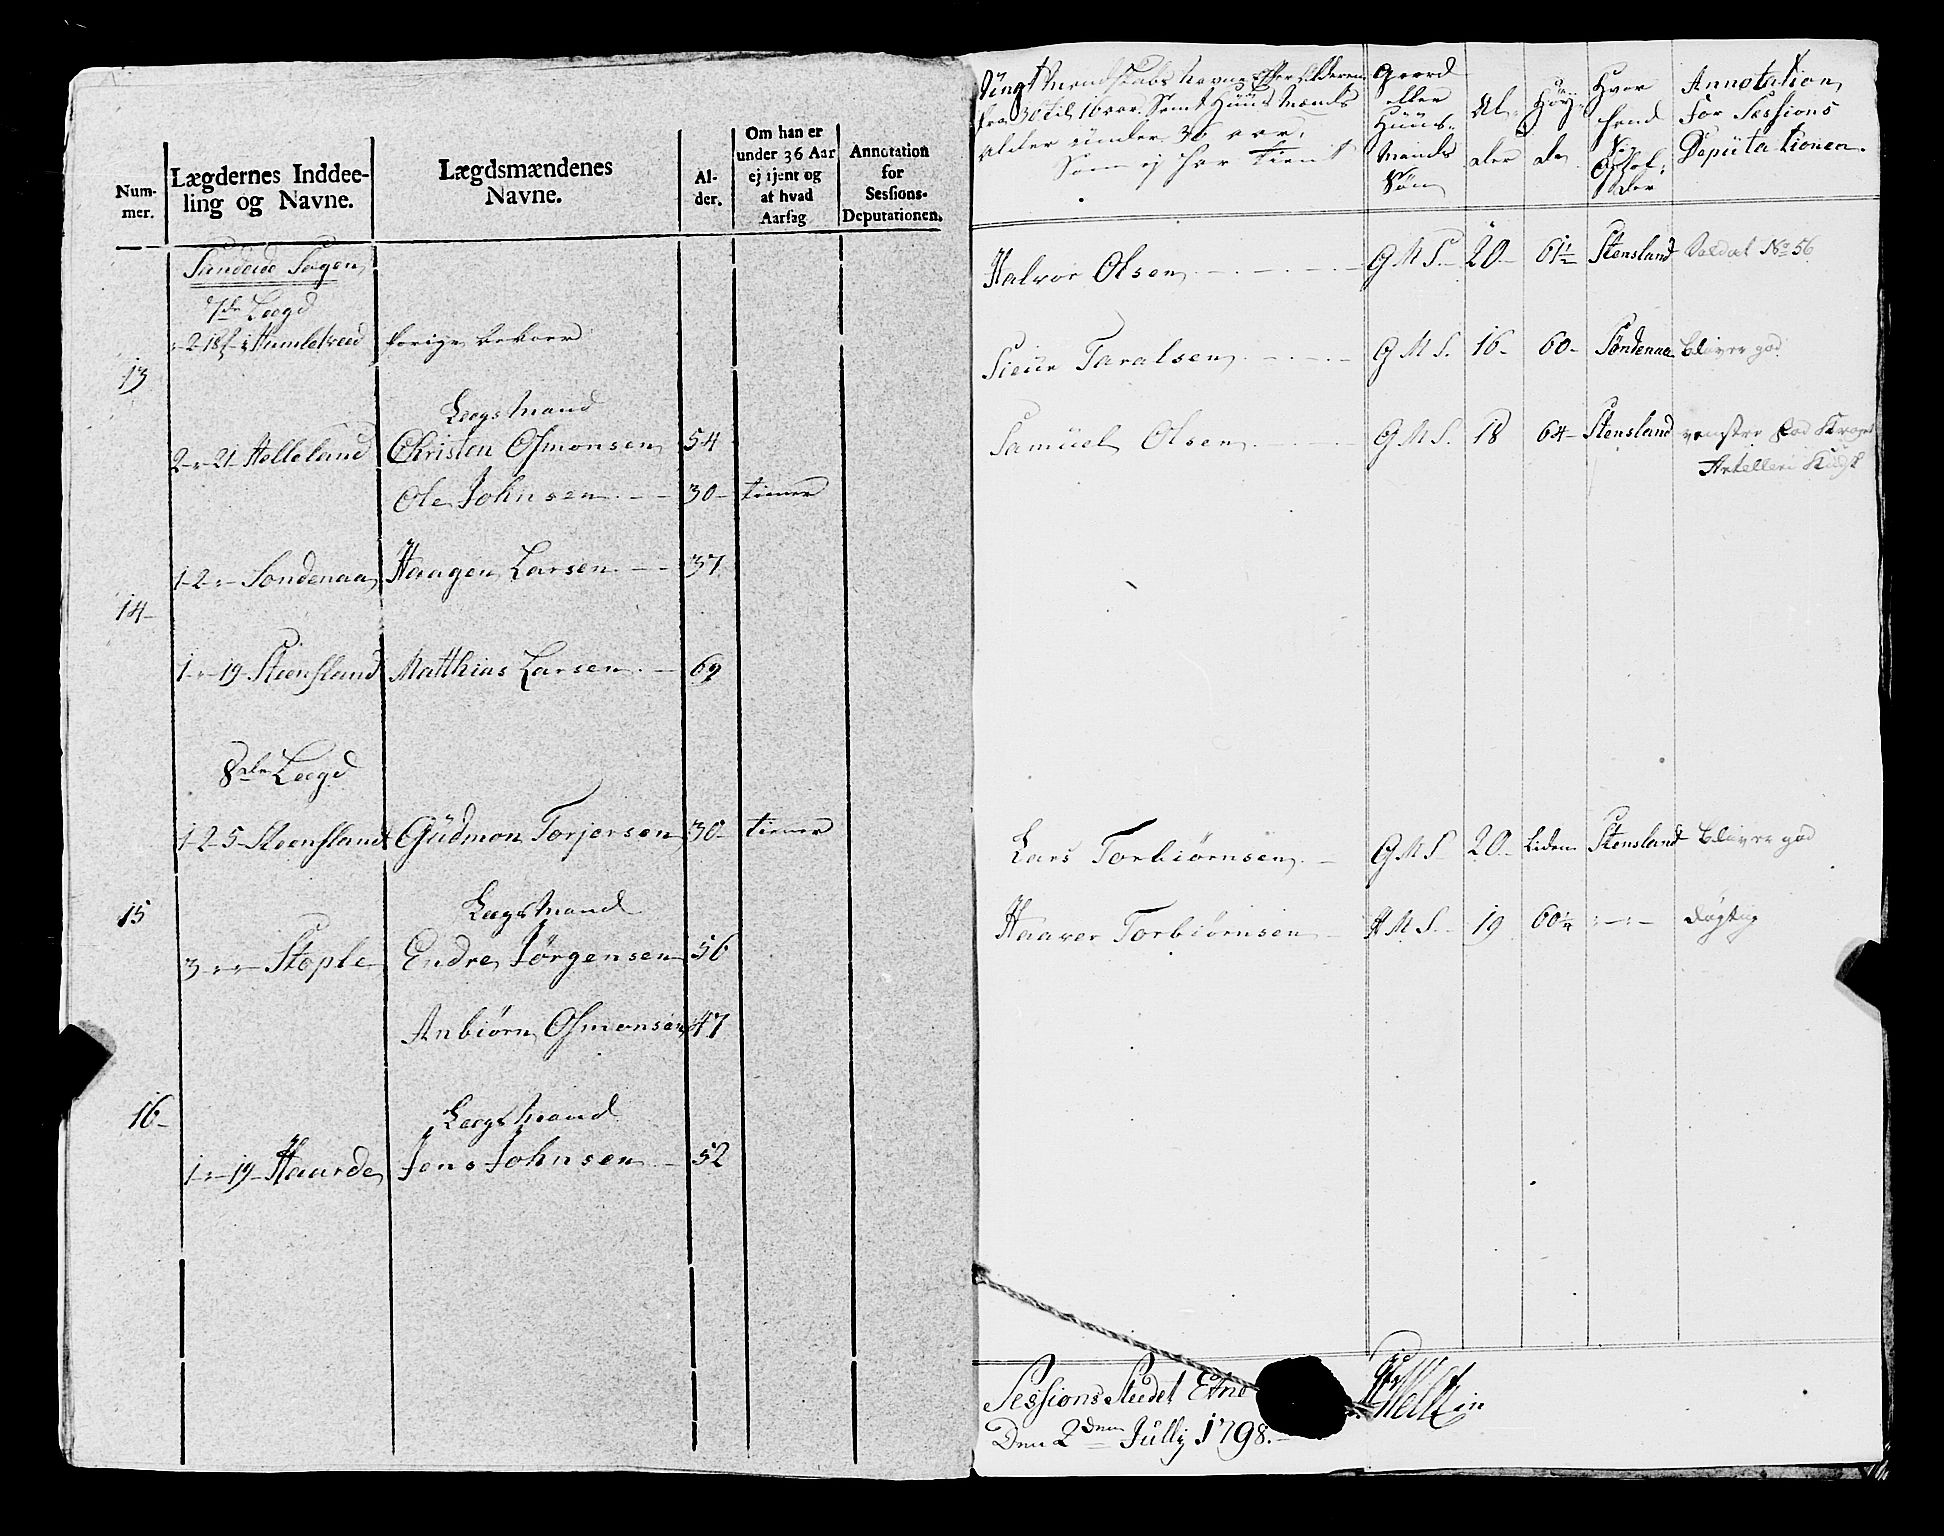 Num-
mer.
Lægdernes Inddee-
ling og Navne.
Lægdsmændenes
Navne.
Al-
der.
Om han er
under 36 Aar
ej tjent og
at hvad
Aarsag
Annotation
for
Sessions-
Deputationen.
Sandeid Sogen
7de Lægd
Humletved forige bekoer
13
Lægsmand
2 - 21 Helleland Christen Osmonsen 54
Ole Johnsen 30 tiener
1 - 2 - Sondenaa Haagen Larsen 37
14
1 - 19 Steensland Matthias Larsen 69
8de Lægd
1 - 2 - 5 Steensland Gudmon Torjersen 30 tiener
15
Lægsmand
3 Stople Endre Jørgensen 56
Anbiørn Osmonsen 47
16
Lægsmand
1 - 19 Haarde Jens Johnsen 52
Ungt Mandskabs Navne Efter Alderen
fra 30 til 16 aar. Samt Huus Mænds
alder under 36 aar,
Som ej har tient
Gaard
eller
Huus-
Mands
Søn
Al-
der
Høy-
de
Hvor
hand
Sig
Ophol-
der
Annotation
for Sessions
Deputationen.
Halvor Olsen G M S. 20 61½ Stensland Soldat No 56
Siur Taralsen G M S. 16 60 Søndenaa bliver god
Samuel Olsen G M S. 18 64 Stensland venstre
Artelleri
Lars Torbiørnsen G M S 20 liden Stensland bliver god
Haaver Torbiørnsen G M S. 19 60¼ dygtig
Sessions Stedet Etne
Den 2den Jully 1798.